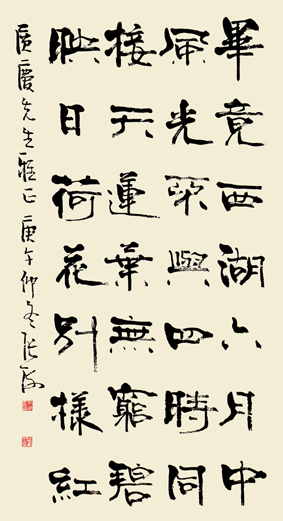 畢竟西湖六月中
風光不與四時同
接天蓮葉無窮碧
映日荷花別樣紅
慶先生雅正 庚午仲冬張海